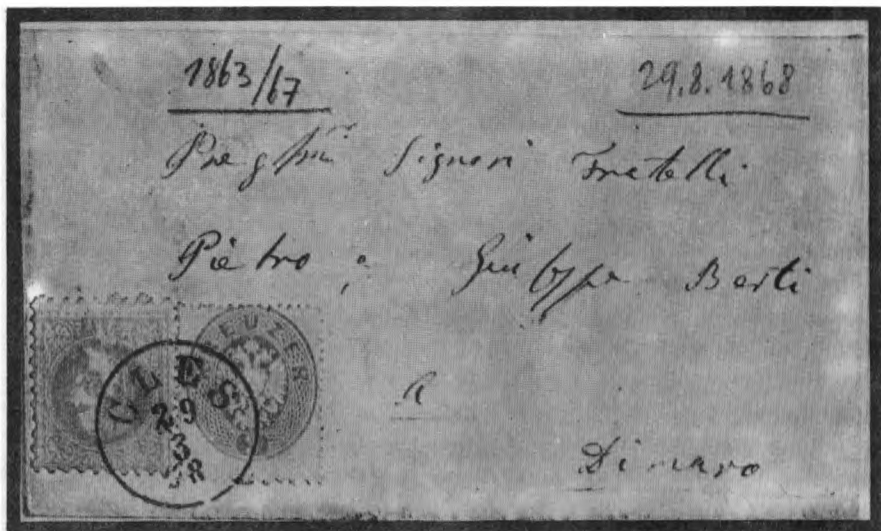 1863/67 29.8.1868
Preg.mi Signori Fratelli
Pietro e Giuseppe Berti
a
Dimaro
EUZER
CLES
29